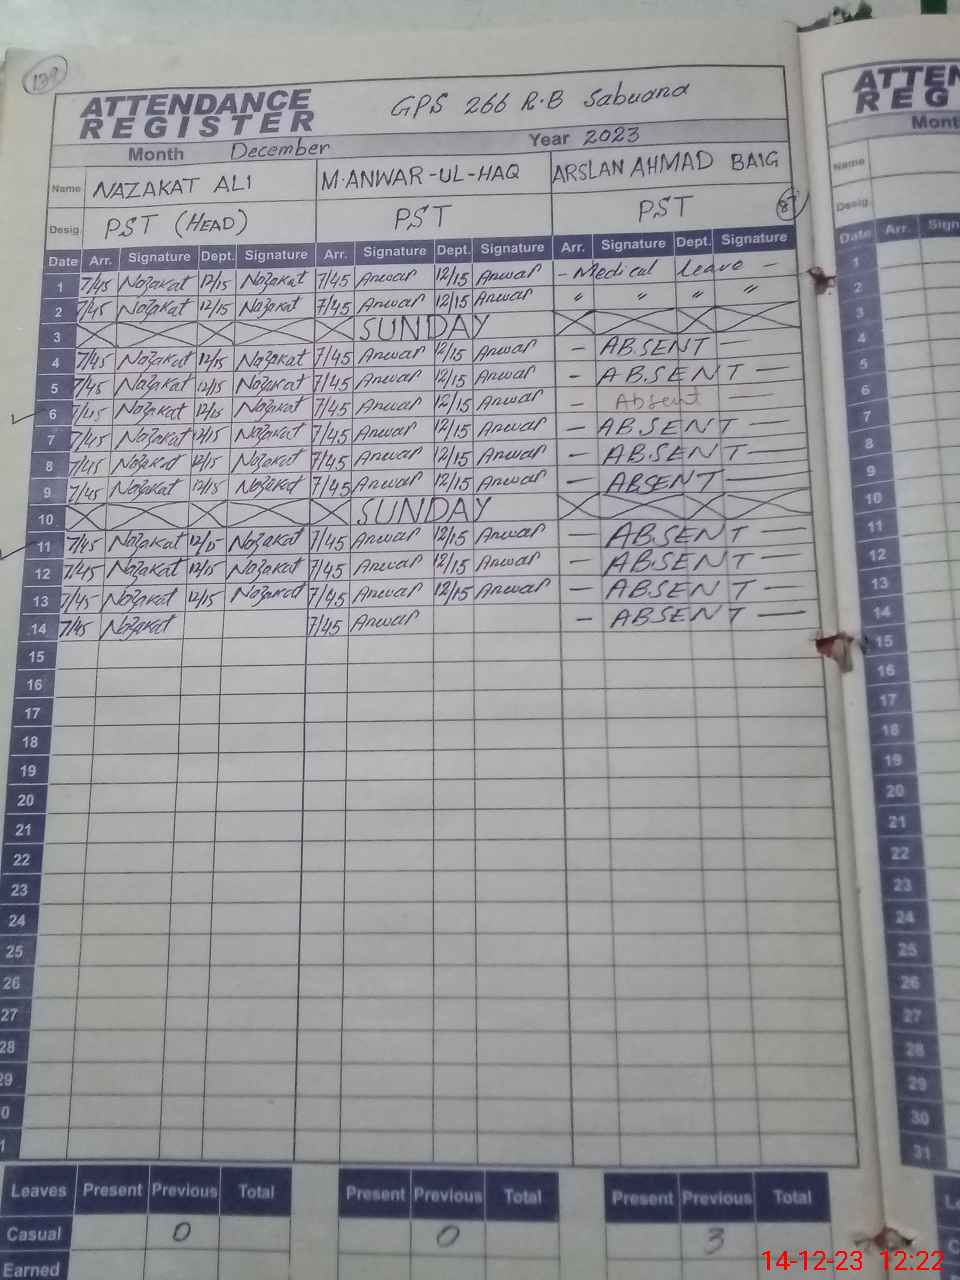 ATTENDANCE REGISTER
GPS 266 R.B Sabuana
Month December Year 2023
Name NAZAKAT ALI M.ANWAR-UL-HAQ ARSLAN AHMAD BAIG
Desig. PST (HEAD) PST PST
Date Arr. Signature Dept. Signature Arr. Signature Dept. Signature Arr. Signature Dept. Signature
1 7/45 Nazakat 12/15 Nazakat 7/45 Anwar 12/15 Anwar - Medical Leave -
2 7/45 Nazakat 12/15 Nazakat 7/45 Anwar 12/15 Anwar " " " "
3 SUNDAY
4 7/45 Nazakat 12/15 Nazakat 7/45 Anwar 12/15 Anwar - ABSENT -
5 7/45 Nazakat 12/15 Nazakat 7/45 Anwar 12/15 Anwar - ABSENT -
6 7/45 Nazakat 12/15 Nazakat 7/45 Anwar 12/15 Anwar - Absent -
7 7/45 Nazakat 12/15 Nazakat 7/45 Anwar 12/15 Anwar - ABSENT -
8 7/45 Nazakat 12/15 Nazakat 7/45 Anwar 12/15 Anwar - ABSENT -
9 7/45 Nazakat 12/15 Nazakat 7/45 Anwar 12/15 Anwar - ABSENT -
10 SUNDAY
11 7/45 Nazakat 12/15 Nazakat 7/45 Anwar 12/15 Anwar - ABSENT -
12 7/45 Nazakat 12/15 Nazakat 7/45 Anwar 12/15 Anwar - ABSENT -
13 7/45 Nazakat 12/15 Nazakat 7/45 Anwar 12/15 Anwar - ABSENT -
14 7/45 Nazakat 7/45 Anwar - ABSENT -
15
16
17
18
19
20
21
22
23
24
25
26
27
28
29
0
1
Leaves Present Previous Total Present Previous Total Present Previous Total
Casual 0 0 3
Earned
ATTEN
REG
Mont
Name
Desig.
Date Arr. Sign
1
2
3
4
5
6
7
8
9
10
11
12
13
14
15
16
17
18
19
20
21
22
23
24
25
26
27
28
29
30
31
14-12-23 12:22